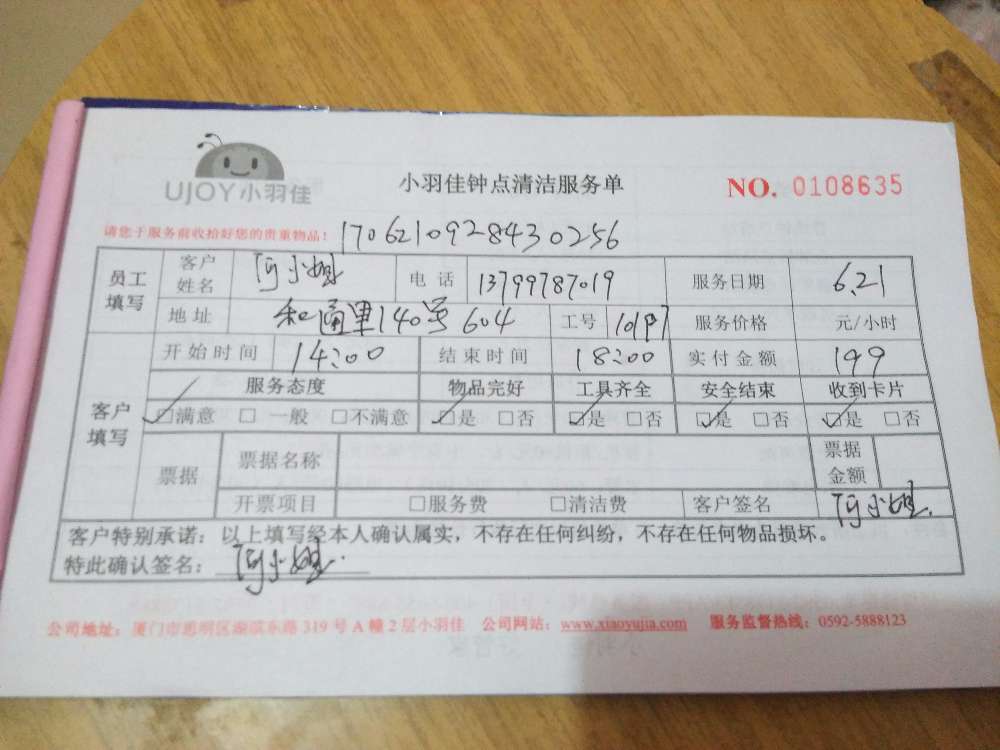 UJOY小羽佳
小羽佳钟点清洁服务单
NO. 0108635
请您于服务前收拾好您的贵重物品!
170621092843 0256
员工填写 客户姓名 阿小姐 电话 13799787019 服务日期 6.21
地址 和通里140号604 工号 服务价格 元/小时
客户填写 开始时间 14:00 结束时间 18:00 实付金额 199
服务态度 物品完好 工具齐全 安全结束 收到卡片
☑满意 □一般 □不满意 ☑是 □否 ☑是 □否 ☑是 □否 ☑是 □否
票据 票据名称 票据金额
开票项目 □服务费 □清洁费 客户签名 阿小姐.
客户特别承诺：以上填写经本人确认属实，不存在任何纠纷，不存在任何物品损坏。
特此确认签名： 阿小姐.
公司地址：厦门市思明区湖滨东路 319 号 A 幢 2 层小羽佳 公司网站：www.xiaoyujia.com 服务监督热线：0592-5888123